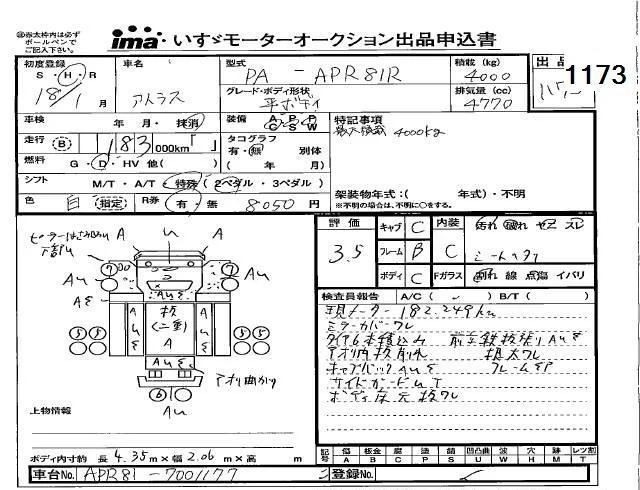 ㊟赤太枠内は必ず
ボールペンで
ご記入下さい。
ima いすゞモーターオークション出品申込書
初度登録 S・H・R 18/1月
車名 アトラス
型式 PA - APR81R
積載 (kg) 4000
出品
1173
グレード・ボディ形状 平ボデイ
排気量 (cc) 4770
車検 年 月・抹消
装備 A P P C S W
特記事項
最大積載 4000kg
走行 (B) 183 000km「 」
タコグラフ 有・無 別体 ( 年 月)
燃料 G・D・HV 他( )
シフト M/T・A/T・特殊 (2ペダル・3ペダル)
架装物年式:( 年式)・不明
※不明の場合は、不明に○をする。
色 白 (指定) R券 有・無 8050円
評価 3.5
キャブ C
フレーム B
ボディ C
内装 C
汚れ 破れ ヤニ スレ
シートヘタリ
Fガラス 割れ 線 点傷 イバリ
検査員報告 A/C( ) B/T( )
現メーター 182.249km
ミラーカバーワレ
タイヤ6本積込み
アオリ内板削れ 根太ワレ
キャブバック AUS
サイドガードUT
ボディ床元板ワレ
A A
AU AU
AUS
板(二重) A
AUS
アオリ曲がり
AU
上物情報
ボディ内寸約 長 4.35m×幅 2.06m×高 m
記号 傷 A 板金 B 腐 C 塗 P 錆 S 凹凸曲 U 波 W 穴 H 跡 M レツ割 T
車台No. APR81-7001177
登録No.